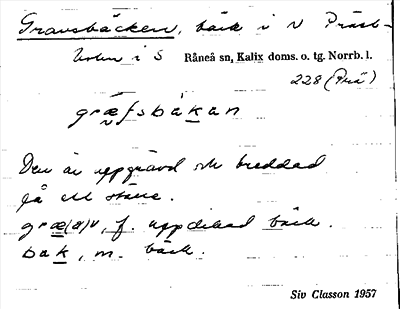 Gravsbäcken, bäck i N Präst-
holm i S Råneå sn, Kalix doms. o. tg. Norrb. l.
228 (Prä)
græfsbäkan
Den är uppgrävd och breddad
på ett ställe.
græ(a)v, f. uppdikad bäck.
bak, m. bäck.
Siv Classon 1957